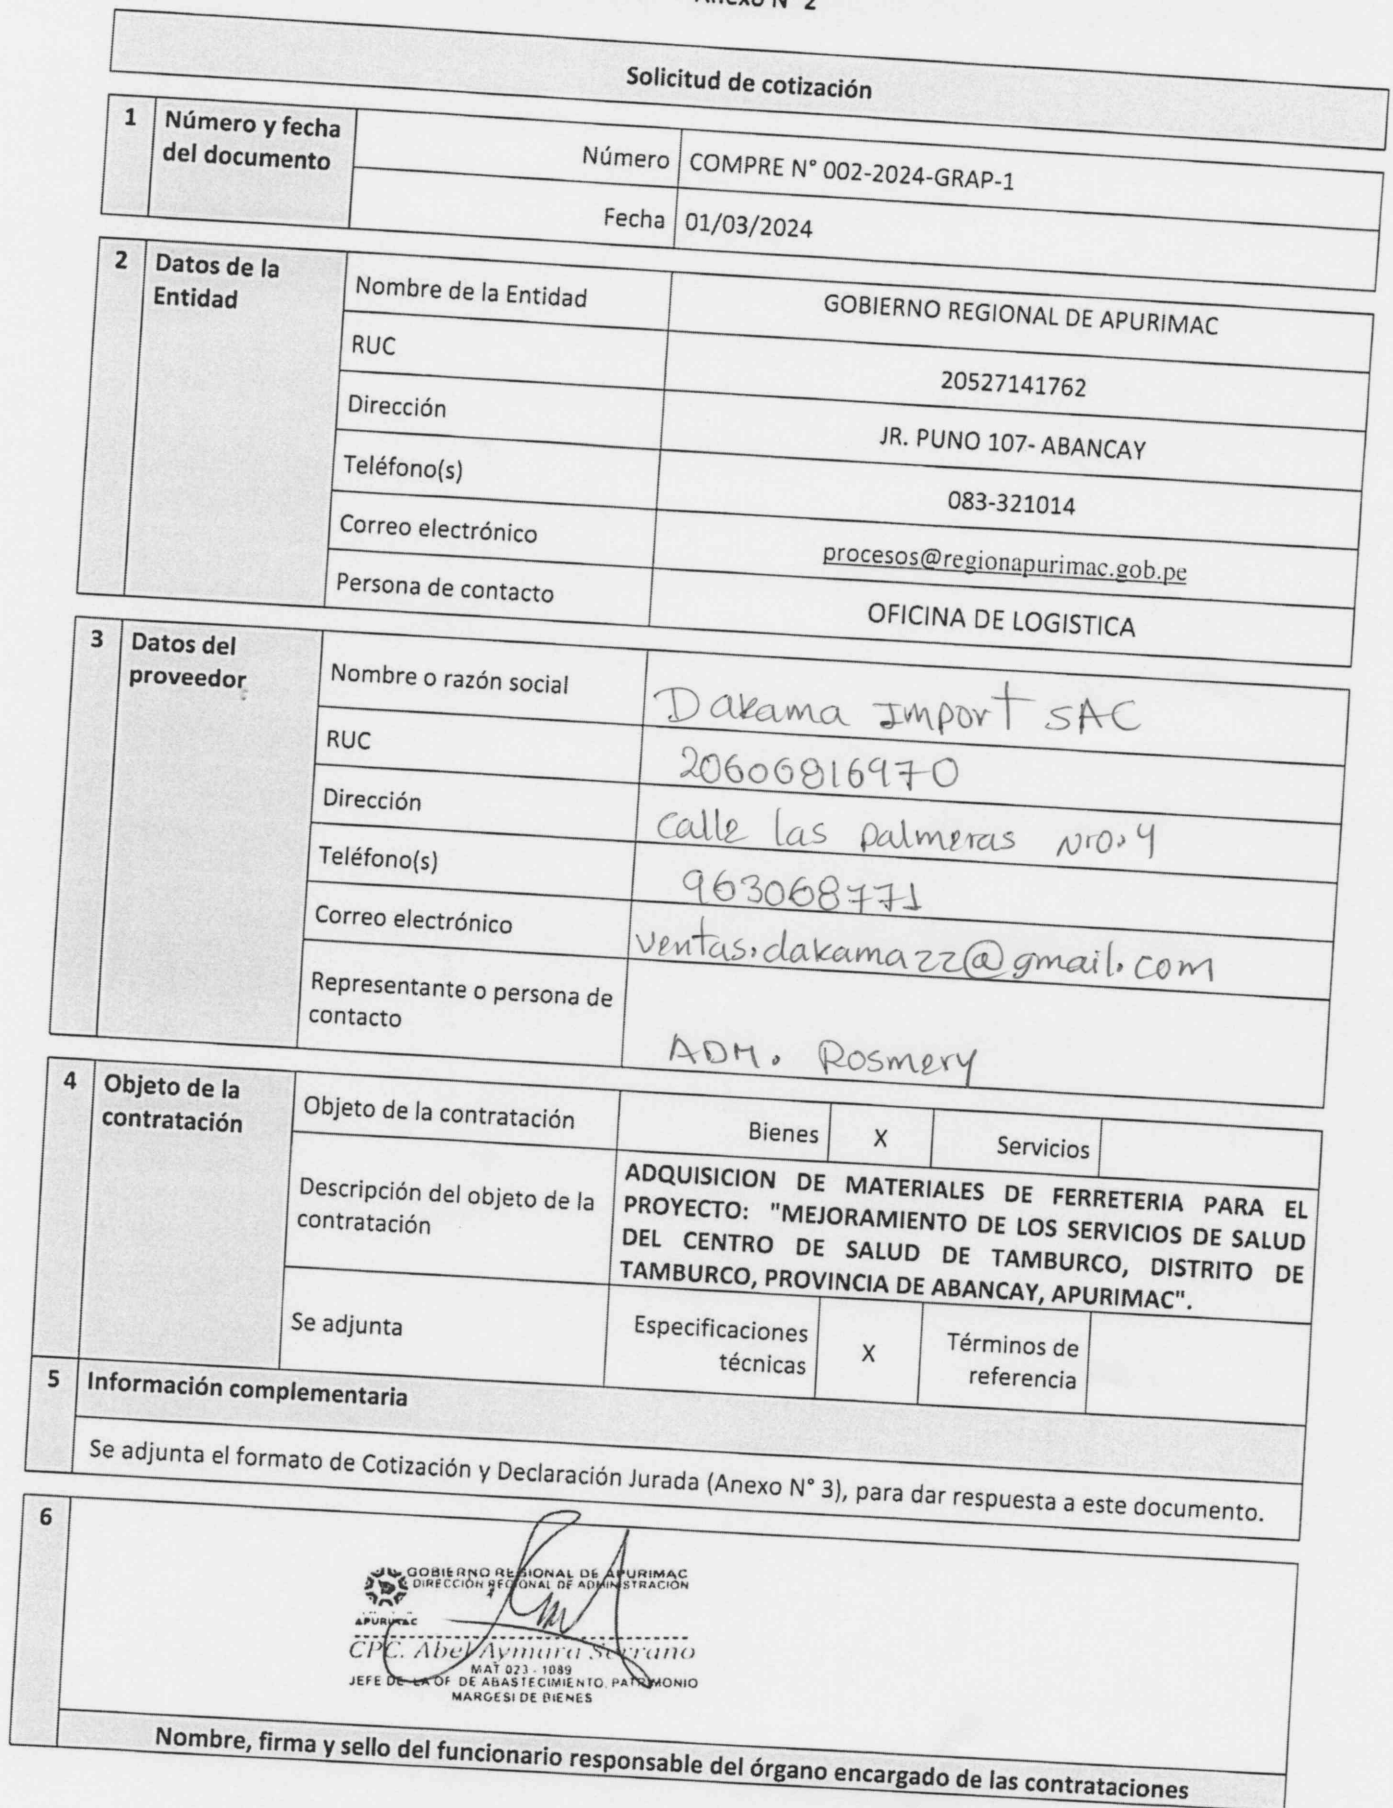 Anexo N° 2
Solicitud de cotización
1 Número y fecha del documento
Número COMPRE N° 002-2024-GRAP-1
Fecha 01/03/2024
2 Datos de la Entidad
Nombre de la Entidad GOBIERNO REGIONAL DE APURIMAC
RUC 20527141762
Dirección JR. PUNO 107- ABANCAY
Teléfono(s) 083-321014
Correo electrónico procesos@regionapurimac.gob.pe
Persona de contacto OFICINA DE LOGISTICA
3 Datos del proveedor
Nombre o razón social Dakama Import SAC
RUC 20606816970
Dirección Calle las palmeras Nro. 4
Teléfono(s) 963068771
Correo electrónico ventas.dakama22@gmail.com
Representante o persona de contacto ADM. Rosmery
4 Objeto de la contratación
Objeto de la contratación Bienes X Servicios
Descripción del objeto de la contratación
ADQUISICION DE MATERIALES DE FERRETERIA PARA EL
PROYECTO: "MEJORAMIENTO DE LOS SERVICIOS DE SALUD
DEL CENTRO DE SALUD DE TAMBURCO, DISTRITO DE
TAMBURCO, PROVINCIA DE ABANCAY, APURIMAC".
Se adjunta Especificaciones técnicas X Términos de referencia
5 Información complementaria
Se adjunta el formato de Cotización y Declaración Jurada (Anexo N° 3), para dar respuesta a este documento.
6
GOBIERNO REGIONAL DE APURIMAC
DIRECCIÓN REGIONAL DE ADMINISTRACIÓN
APURIMAC
CPC. Abel Aymara Serrano
MAT 023 - 1089
JEFE DE LA OF DE ABASTECIMIENTO, PATRIMONIO
MARGESI DE BIENES
Nombre, firma y sello del funcionario responsable del órgano encargado de las contrataciones